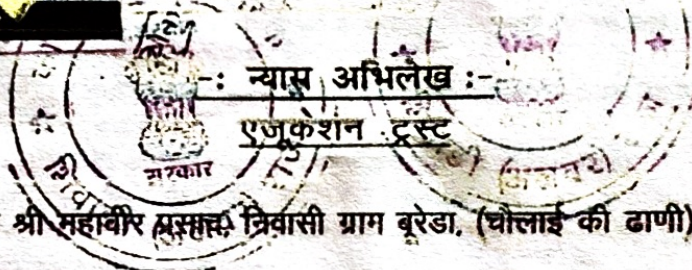 -: न्यास अभिलेख :-
एजूकेशन ट्रस्ट
सरकार
(अलवर)
श्री महावीर प्रसाद, निवासी ग्राम बूरेडा, (चौलाई की ढाणी)